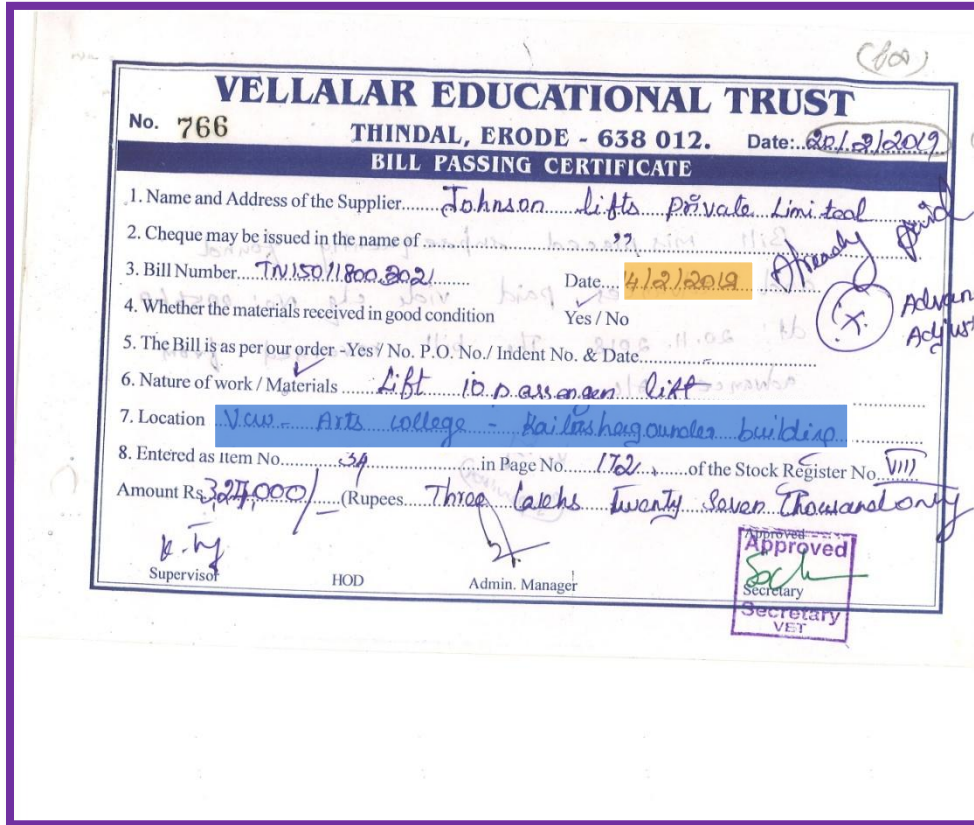 VELLALAR EDUCATIONAL TRUST
No. 766
THINDAL, ERODE - 638 012. Date:..20/2/2019
BILL PASSING CERTIFICATE
1. Name and Address of the Supplier....Johnson lifts private Limited
2. Cheque may be issued in the name of ....."
Already paid
3. Bill Number...TN15011800.2021 Date....4/2/2019
4. Whether the materials received in good condition Yes / No
Advan
Adjust
5. The Bill is as per our order - Yes / No. P.O. No./ Indent No. & Date
6. Nature of work / Materials ....Lift 10 passenger lift
7. Location Vcw - Arts college - building
8. Entered as Item No....34....in Page No....172....of the Stock Register No. VIII
Amount Rs.3,27,000/- (Rupees Three Lakhs Twenty Seven Thousand only
Approved
Approved
Supervisor HOD Admin. Manager
Secretary
Secretary
VET